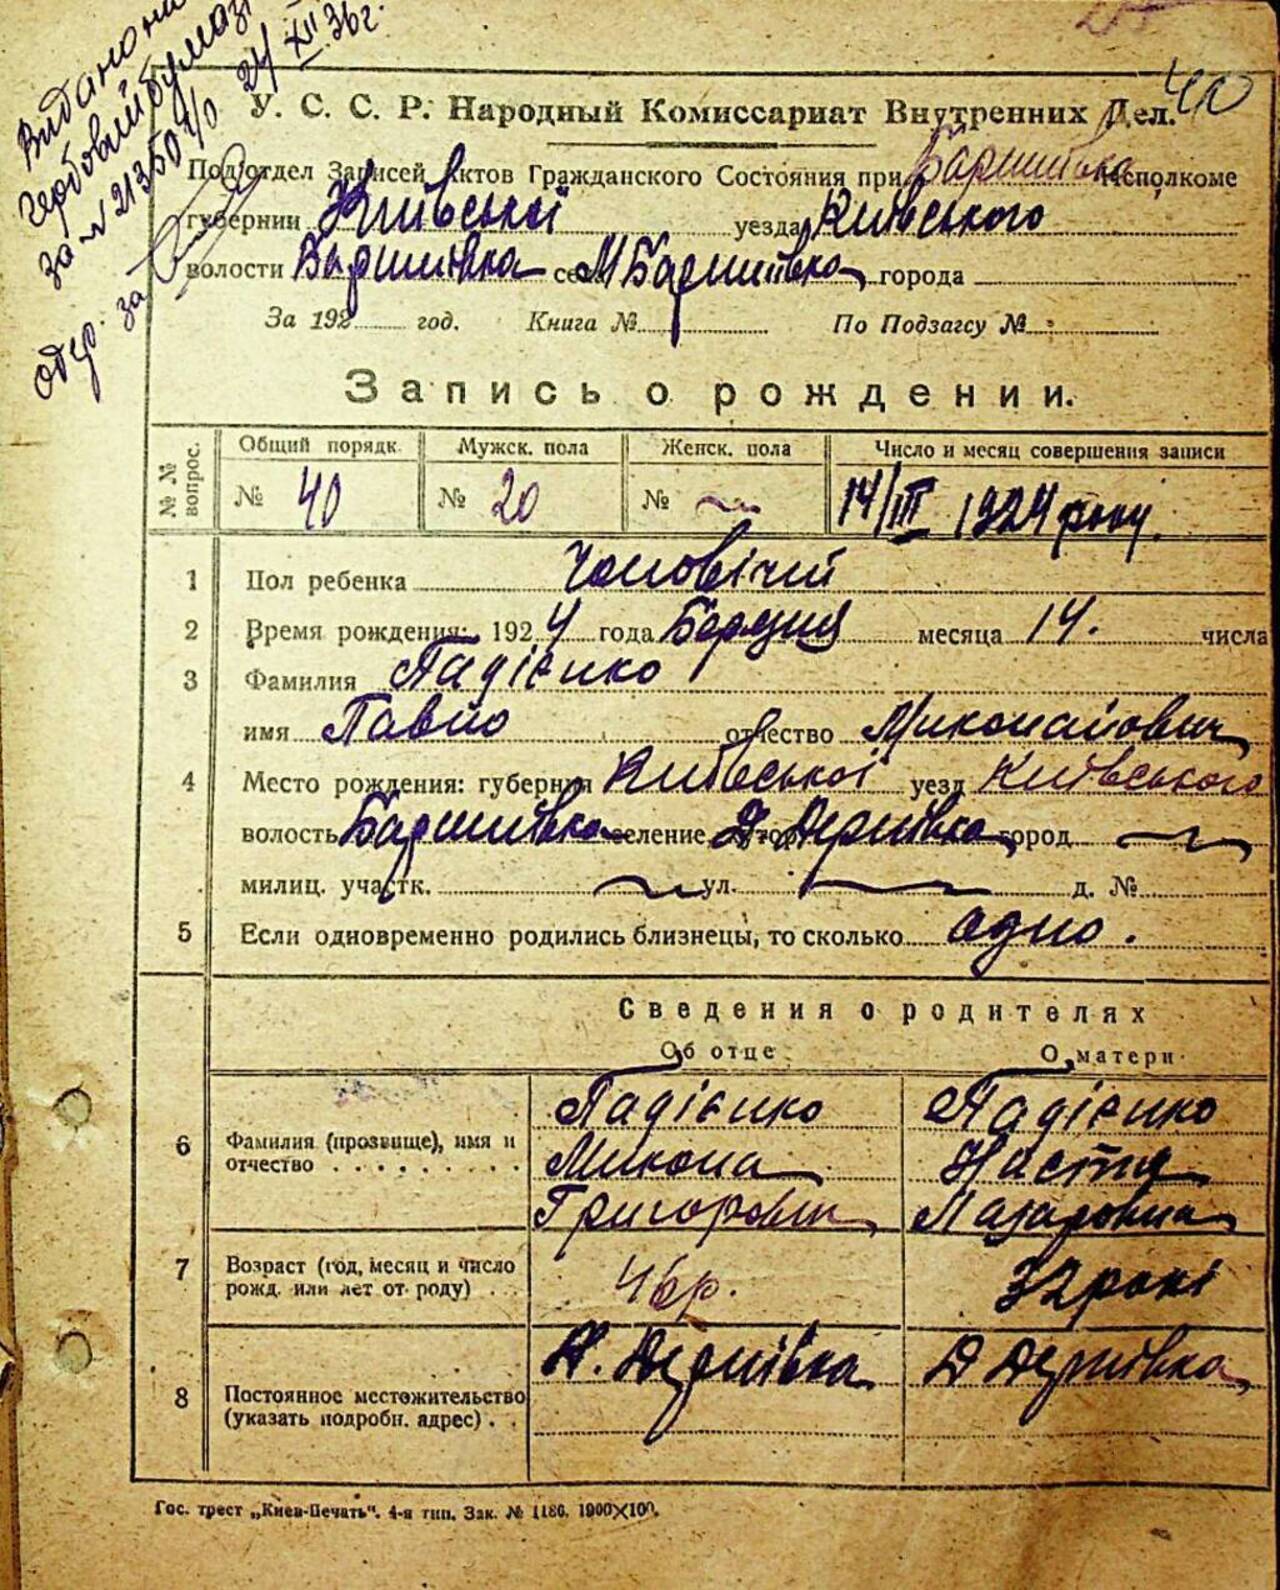 Видано на
гербовий бумазі
за № 21350 1/0 24/XII 36г.
У. С. С. Р. Народный Комиссариат Внутренних Дел.
40
Подотдел Записей Актов Гражданского Состояния при Баришівка Исполкоме
губернии Київської уезда Київського
волости Баришівка села М Баришівка города
За 192 год. Книга № По Подзагсу №
Запись о рождении.
№ № вопрос. Общий порядк. Мужск. пола Женск. пола Число и месяц совершения записи
№ 40 № 20 № 14/III 1924 року.
1 Пол ребенка Чоловічий
2 Время рождения: 1924 года Березня месяца 14. числа
3 Фамилия Падієнко
имя Павло отчество Миколайович
4 Место рождения: губерния Київської уезд Київського
волость Баришівка селение, хутор Д. Дернівка город
милиц. участк. ул. д. №
5 Если одновременно родились близнецы, то сколько одно.
Сведения о родителях
Об отце О матери
Падієнко Падієнко
6 Фамилия (прозвище), имя и Микола Настя
отчество Григорович Лазаровна
7 Возраст (год, месяц и число
рожд. или лет от роду) 46 р. 32 рокі
Д. Дернівка Д Дернівка
8 Постоянное местожительство
(указать подробн. адрес)
Гос. трест „Киев-Печать“. 4-я тип. Зак. № 1186. 1900×100.